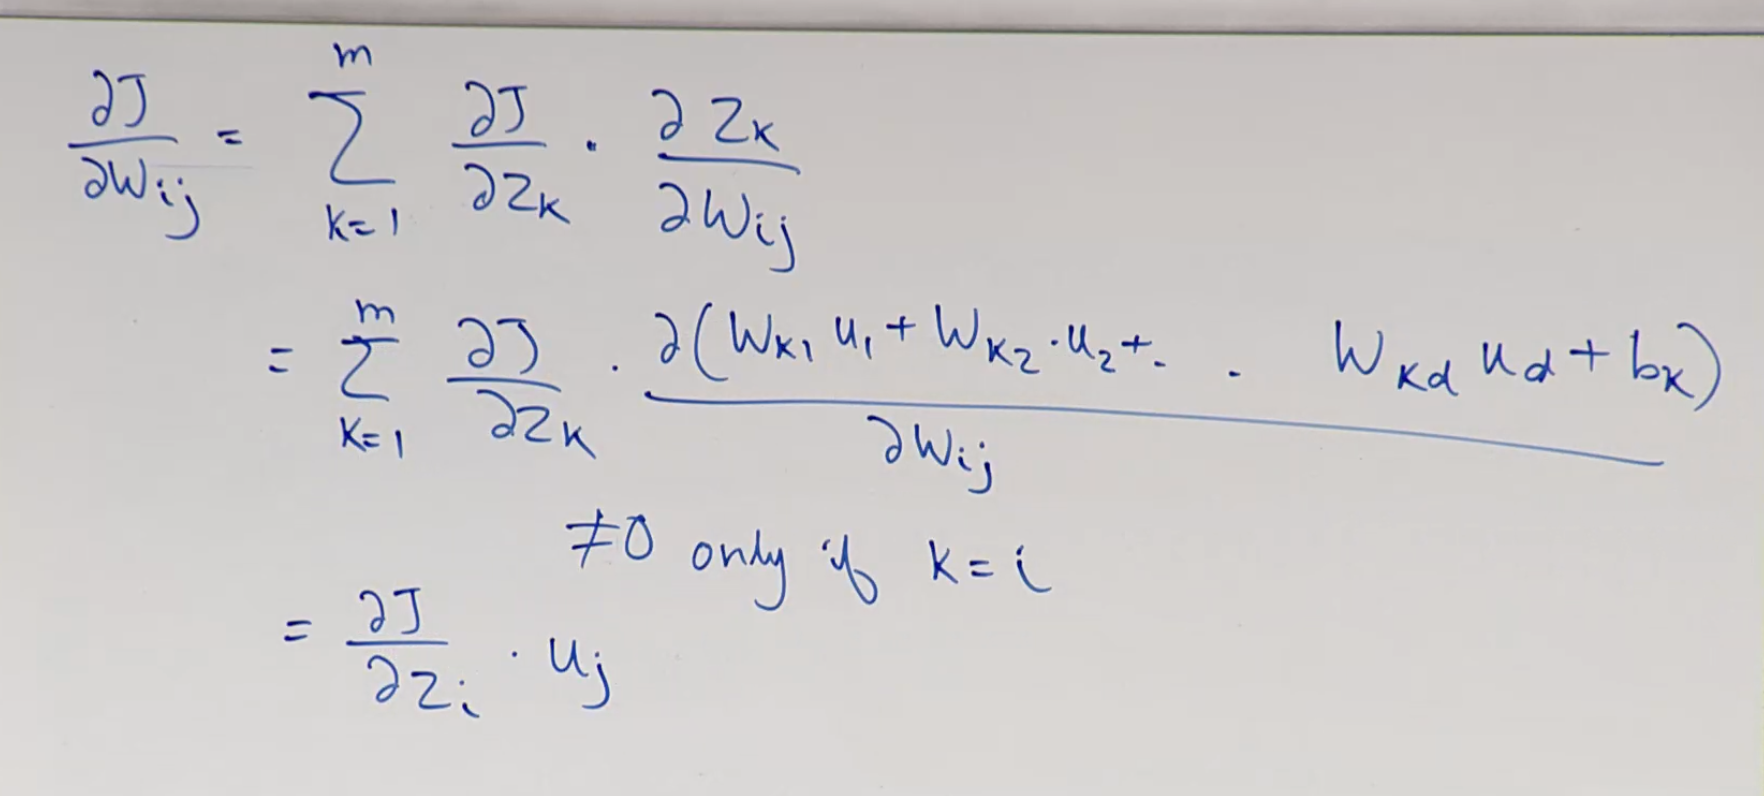 ∂J/∂Wij = ∑_{k=1}^{m} ∂J/∂Zk · ∂Zk/∂Wij
= ∑_{k=1}^{m} ∂J/∂Zk · ∂(Wk1 u1 + Wk2 · u2 + . . Wkd ud + bk)/∂Wij
≠0 only if k = i
= ∂J/∂Zi · uj